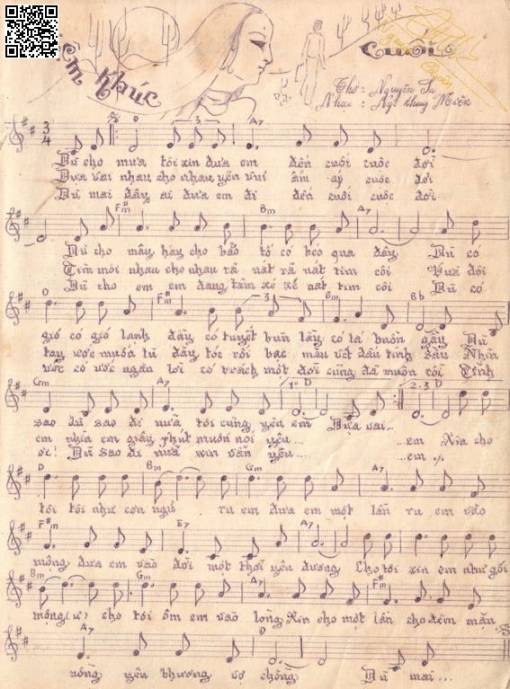 Em. Khúc Cuối
Thơ: Nguyên Sa
Nhạc: Ngô Thụy Miên
3/4 D A7
Dù cho mưa tôi xin đưa em đến cuối cuộc đời
Dựa vai nhau cho nhau yên vui ấm áp cuộc đời
Dù mai đây ai đưa em đi đến cuối cuộc đời
F#m Bm A7
Dù cho mây hay cho bão tố có kéo qua đây Dù có
Tìm môi nhau cho nhau rã nát rã nát tim côi Vuốt đôi
Dù cho em em đang tâm xé xé nát tim côi Dù có
D F#m Bm Bb
gió có gió lạnh đầy có tuyết bùn lầy có lá buồn gầy Dù
tay ước muốn tù đầy tóc rối bạc màu vết dấu tình sầu Nhìn
ước có ước ngàn lời có trách một đời cũng đã muộn rồi Tình
Gm A7 1° D 2.3 D
sao dù sao đi nữa tôi cũng yêu em Dựa vai...
em nhìn em giây phút muốn nói yêu... ...em Xin cho
ơi! Dù sao đi nữa xin vẫn yêu... ...em
D Bm Gm A7
tôi tôi như cơn ngủ ru em đưa em một lần ru em vào
F#m E7 A7
mộng đưa em vào đời một thời yêu đương Cho tôi xin em như gối
Bm Em A7 F#m
mộng(ư) cho tôi ôm em vào lòng Xin cho một lần cho đêm mặn
A7 D
nồng yêu thương vợ chồng Dù mai...